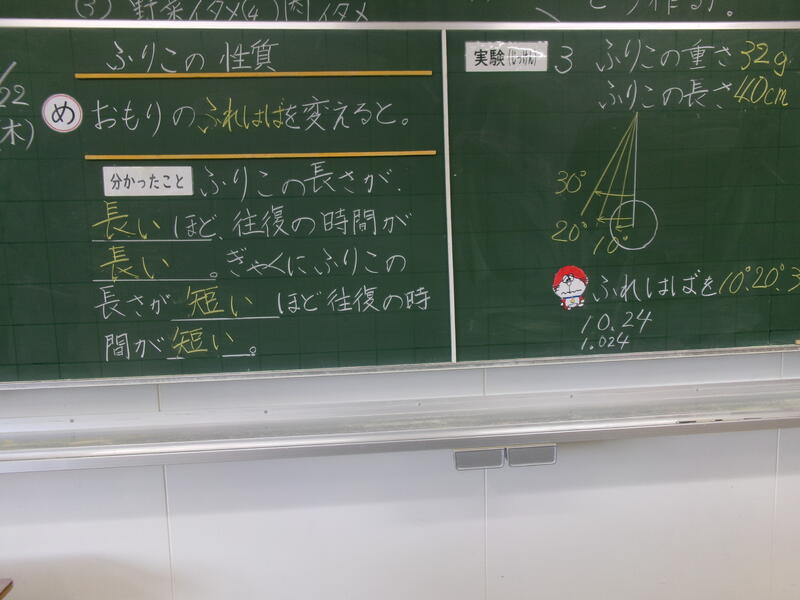 (3) 野菜イタメ(4)肉イタメ
/22
(木)
ふりこの性質
め おもりのふれはばを変えると。
分かったこと ふりこの長さが、
長いほど、往復の時間が
長い。ぎゃくにふりこの
長さが短いほど往復の時
間が短い。
実験(じっけん) 3 ふりこの重さ32g
ふりこの長さ40cm
30°
20°
10°
ふれはばを10°20°3
10.24
1.024